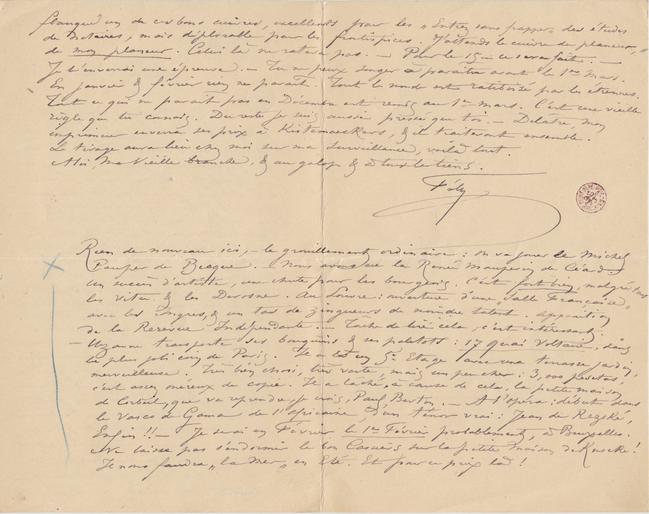 flanqué un de ces bons cuivres, excellents pour les « Entrez sans frapper » des études
de Notaires, mais déplorable pour les frontispices. J'attends le cuivre de planeur,
de mon planeur. Celui là ne ratera pas. — Pour le 15 — ce sera faite. —
Je t'enverrai une épreuve. — Tu ne peux songer à paraître avant le 1er Mars.
En janvier & février rien ne paraît. Tout le monde est ratiboisé par les étrennes.
Tout ce qui ne paraît pas en Décembre est remis au 1er mars. C'est une vieille
règle que tu connais. Du reste je suis aussi pressé que toi. — Delâtre, mon
imprimeur enverra ses prix à Kistemaeckers, & ils traiteront ensemble.
Le tirage aura lieu chez moi sur ma surveillance, voilà tout.
Moi, Ma Vieille branche, & au galop & à toi le tiens.
Fély
Rien de nouveau ici, — le grouillement ordinaire : on va jouer le Michel
Pauper de Becque. — Nous avons eu la Renée Mauperin de Céard.
Un succès d'artiste, une chute pour les bourgeois. C'est fort bien, malgré
les Vitu & les Davosne. Au Louvre : ouverture d'une « Salle Française »
avec les Ingres, & un tas de zingueurs de moindre talent. apparition
de la Revue Indépendante. — Tâche de lire cela, c'est intéressant ;
— Uzanne transporte ses bouquins & ses paletots : 17 Quai Voltaire, dans
le plus joli coin de Paris. Il a là un 5e Etage avec une terrasse jardin,
merveilleuse. Très bien choisi, très vaste, mais un peu cher : 3,000 pesetas,
c'est assez onéreux de copie. Il a lâché, à cause de cela, la petite maison
de Corbeil, que va reprendre je crois, Paul. — A l'opéra : débuts dans
le Vasco de Gama de l'Africaine d'un ténor vrai : Jean de Reszké,
Enfin !! — Je serai en Février le 1er Février probablement, à Bruxelles.
Ne laisse pas s'endormir le bon sur la petite maison de Knocke !
Il nous faudra « la Mer » en Eté. Et pour ce prix là !